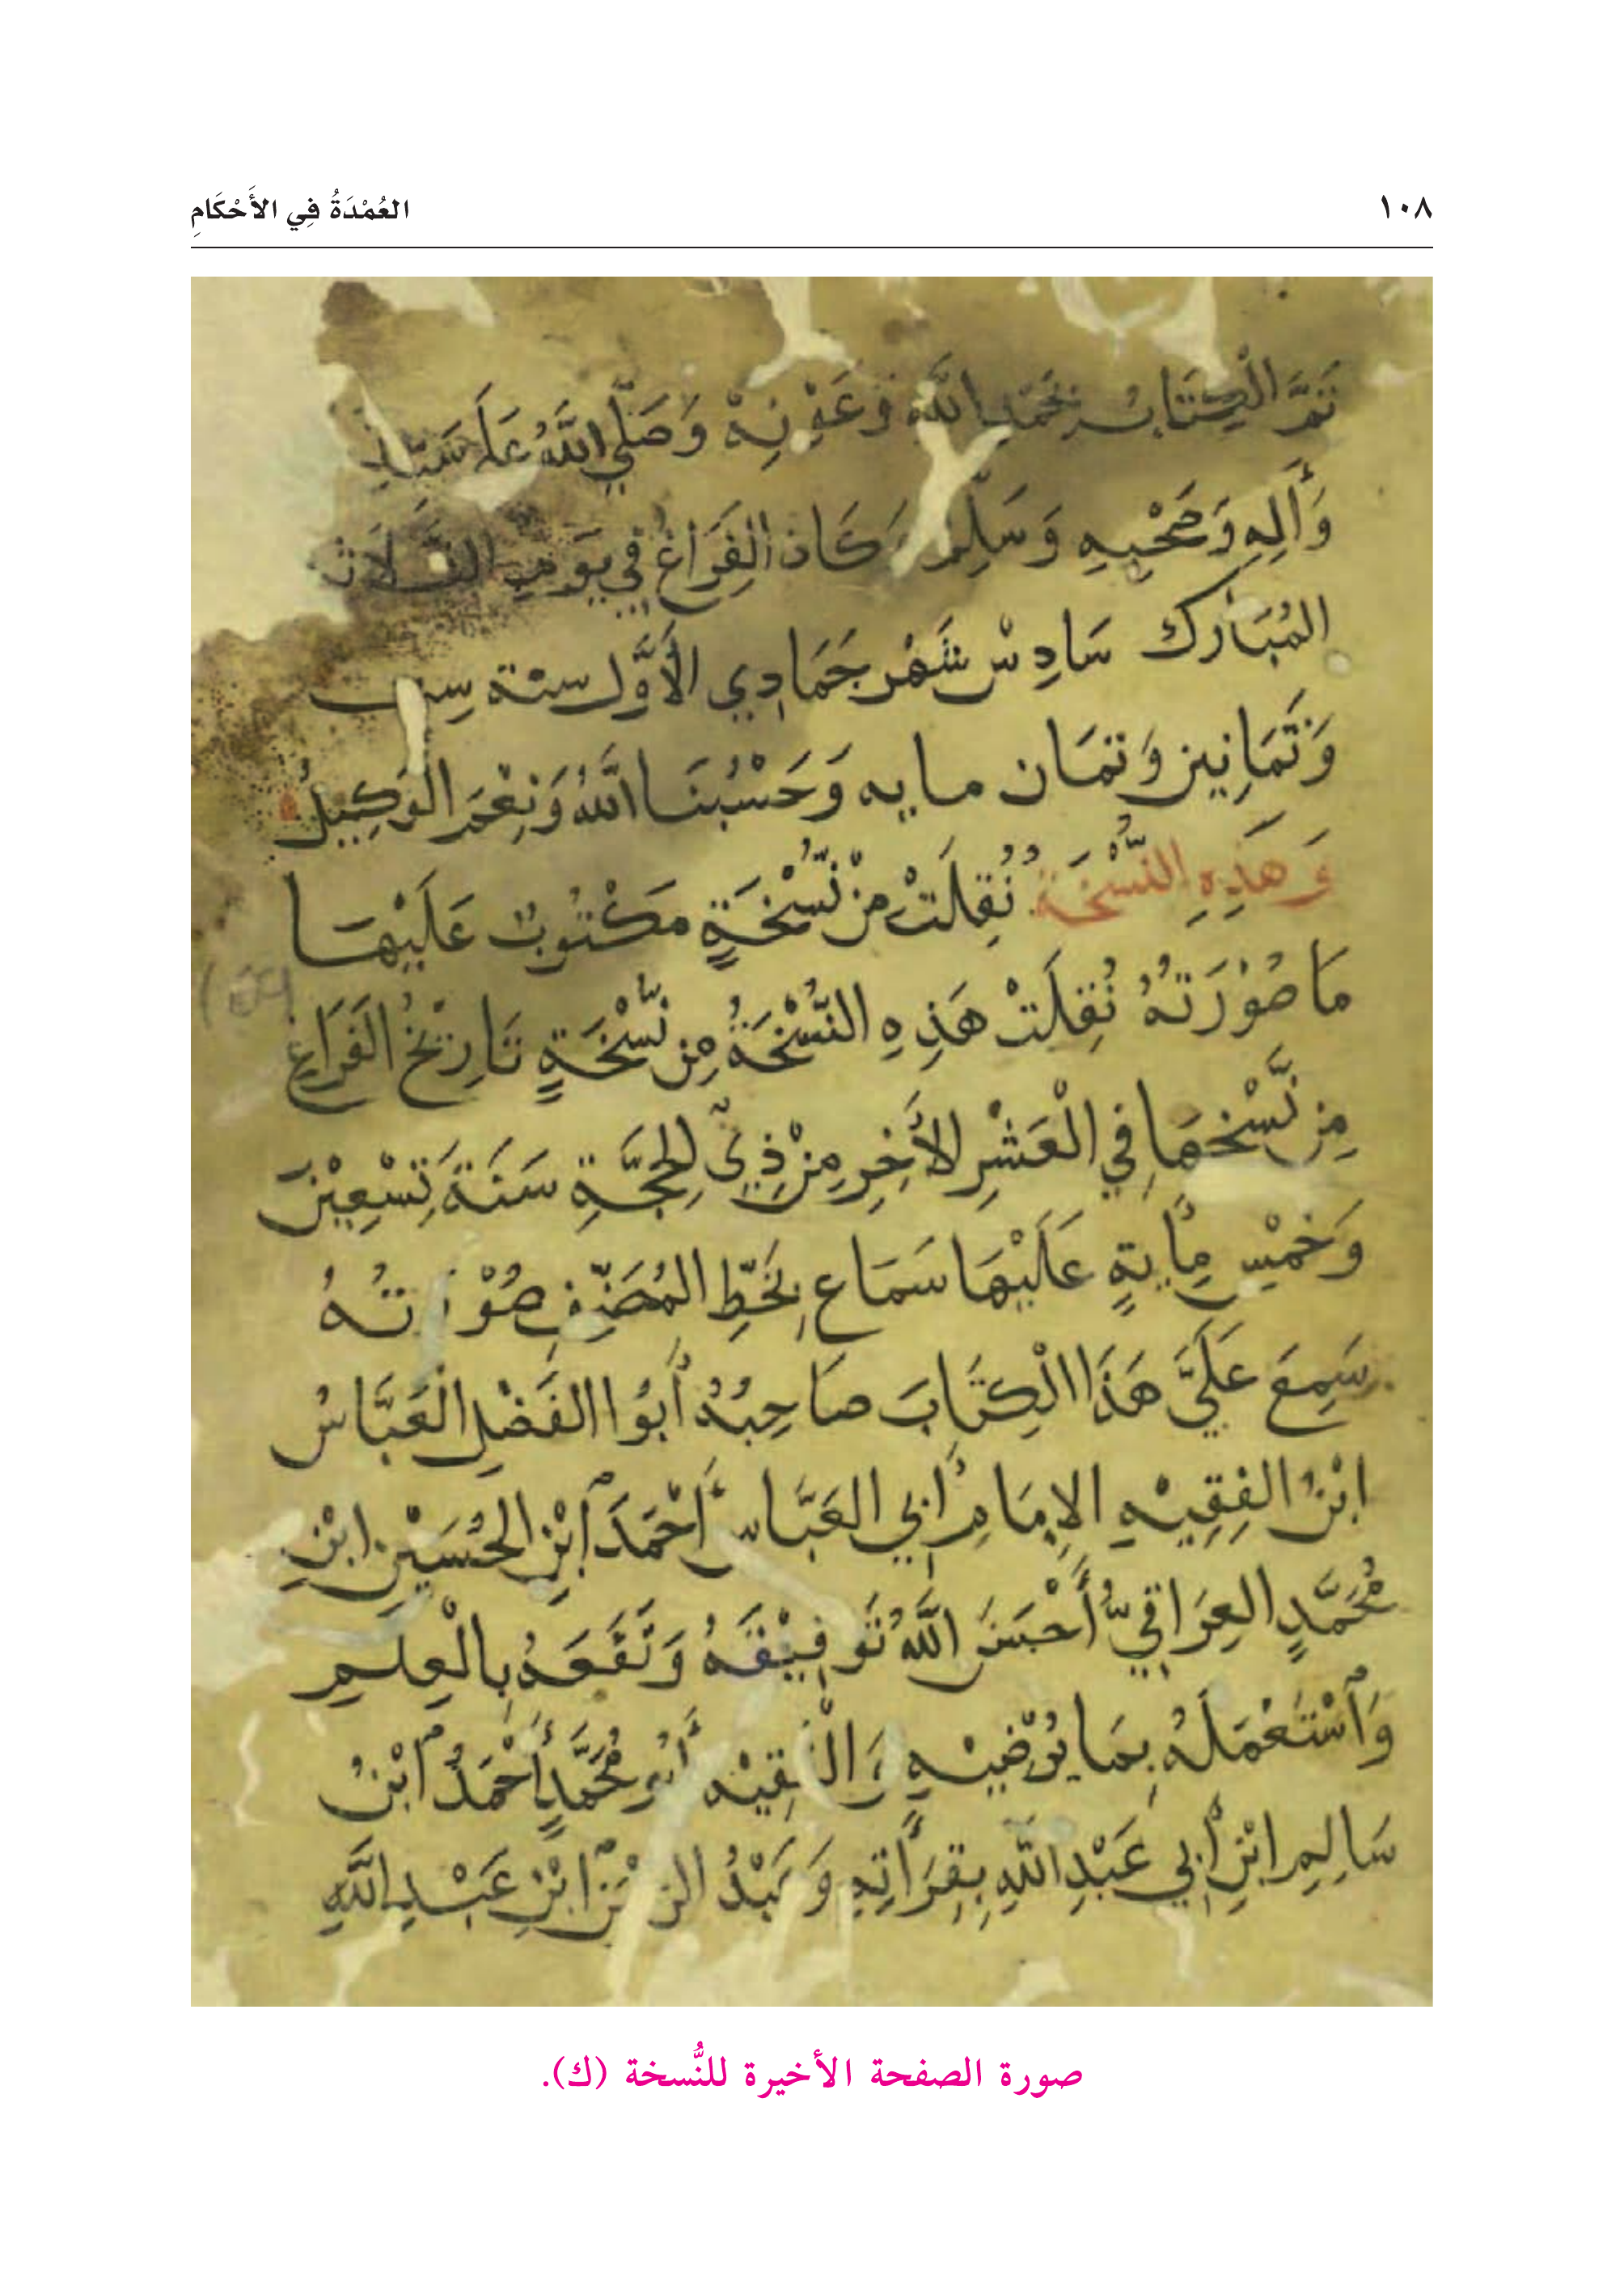 ١٠٨
العُمْدَةُ فِي الأَحْكَامِ
تَمَّ الْكِتَابُ بِحَمْدِ اللَّهِ وَعَوْنِهْ وَصَلَّى اللَّهُ عَلَى
وَأَلِهِ وَصَحْبِهِ وَسَلِّم كَانَ الفَرَاغُ فِي يَوْمِ الثلاث
المُبَارَك سَادِسْ شَهْر جَمَادِي الأَوَّل سنة
وَثَمَانِين وَثمَان مايه وَحَسْبُنَا اللَّهُ وَنِعْمَ الوَكِيلُ
وَهَذِهِ النُّسْخَةُ نُقِلَتْ مِنْ نُّسْخَةٍ مَكْتُوبٌ عَلَيْهَا
مَا صُوْرَتُهُ نُقِلَتْ هَذِهِ النُّسْخَةُ مِن نُّسْخَةٍ تَارِيْخُ الفَرَاغِ
مِن نَّسْخِهَا فِي الْعَشْرِ الأَخِرِ مِنْ ذِي الْحِجَّةِ سَنَةَ تِسْعِيْنَ
وَخَمْسِ مِايةٍ عَلَيْهَا سَمَاع بِخَطِّ المُصَنِّفِ صُوْرَتُهُ
سَمِعَ عَلَيَّ هَذَا الْكِتَابَ صَاحِبُهُ أَبُوا الفَضْلِ الْعَبَّاسُ
ابْنُ الفِقِيْهِ الإِمَامِ أَبِي العَبَّاسِ أَحْمَدَ ابْنِ الحُسَيْنِ ابْنِ
مُحَمَّدٍ العِرَاقِيُّ أَحْسَنَ اللَّهُ تَوفِيْقَهُ وَنَفَعَهُ بِالْعِلْمِ
وَاسْتَعْمَلَهُ بِمَا يُرْضِيْهِ وَالْفَقِيْه أَبُو مُحَمَّدٍ أَحْمَدُ ابْنُ
سَالِمِ ابْنِ أَبِي عَبْدِ اللَّهِ بِقِرَأَتِهِ وَعَبْدُ الرحْمَن ابْنِ عَبْدِ اللَّهِ
صورة الصفحة الأخيرة للنُّسخة (ك).